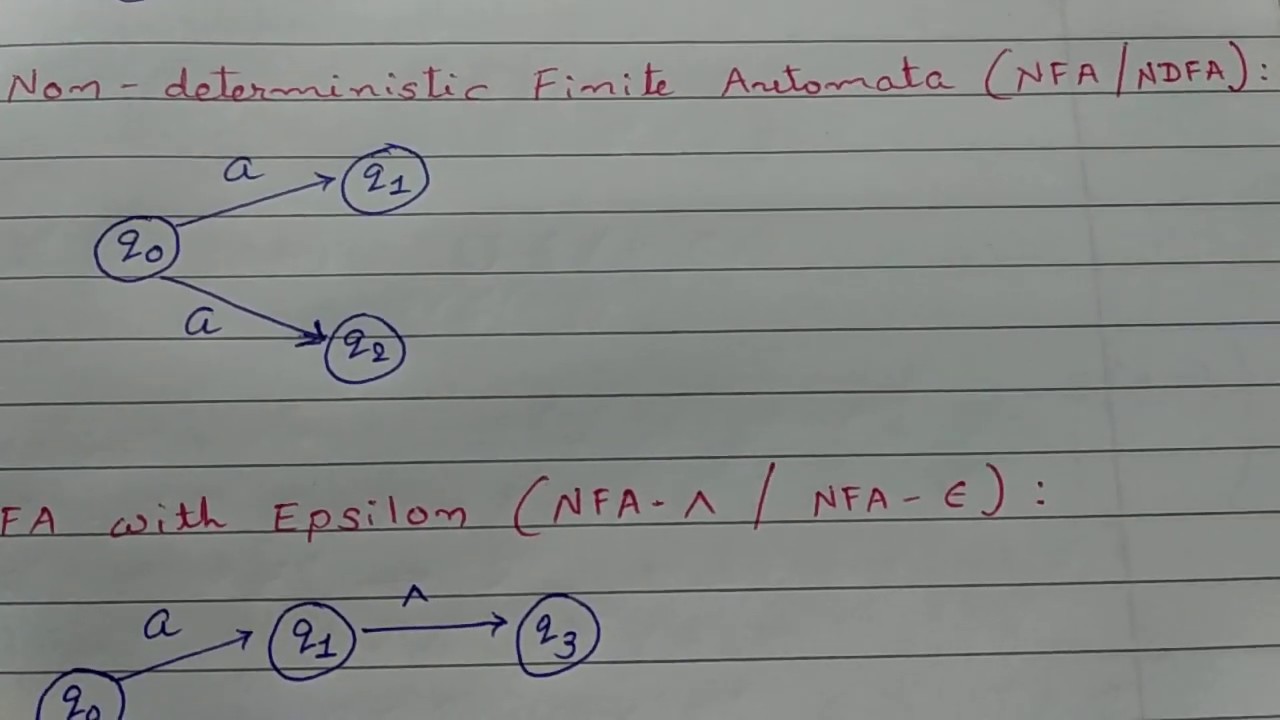 Non-deterministic Finite Automata (NFA/NDFA):
a
q1
q0
a
q2
FA with Epsilon (NFA-Λ / NFA-ϵ):
a
Λ
q1
q3
q0